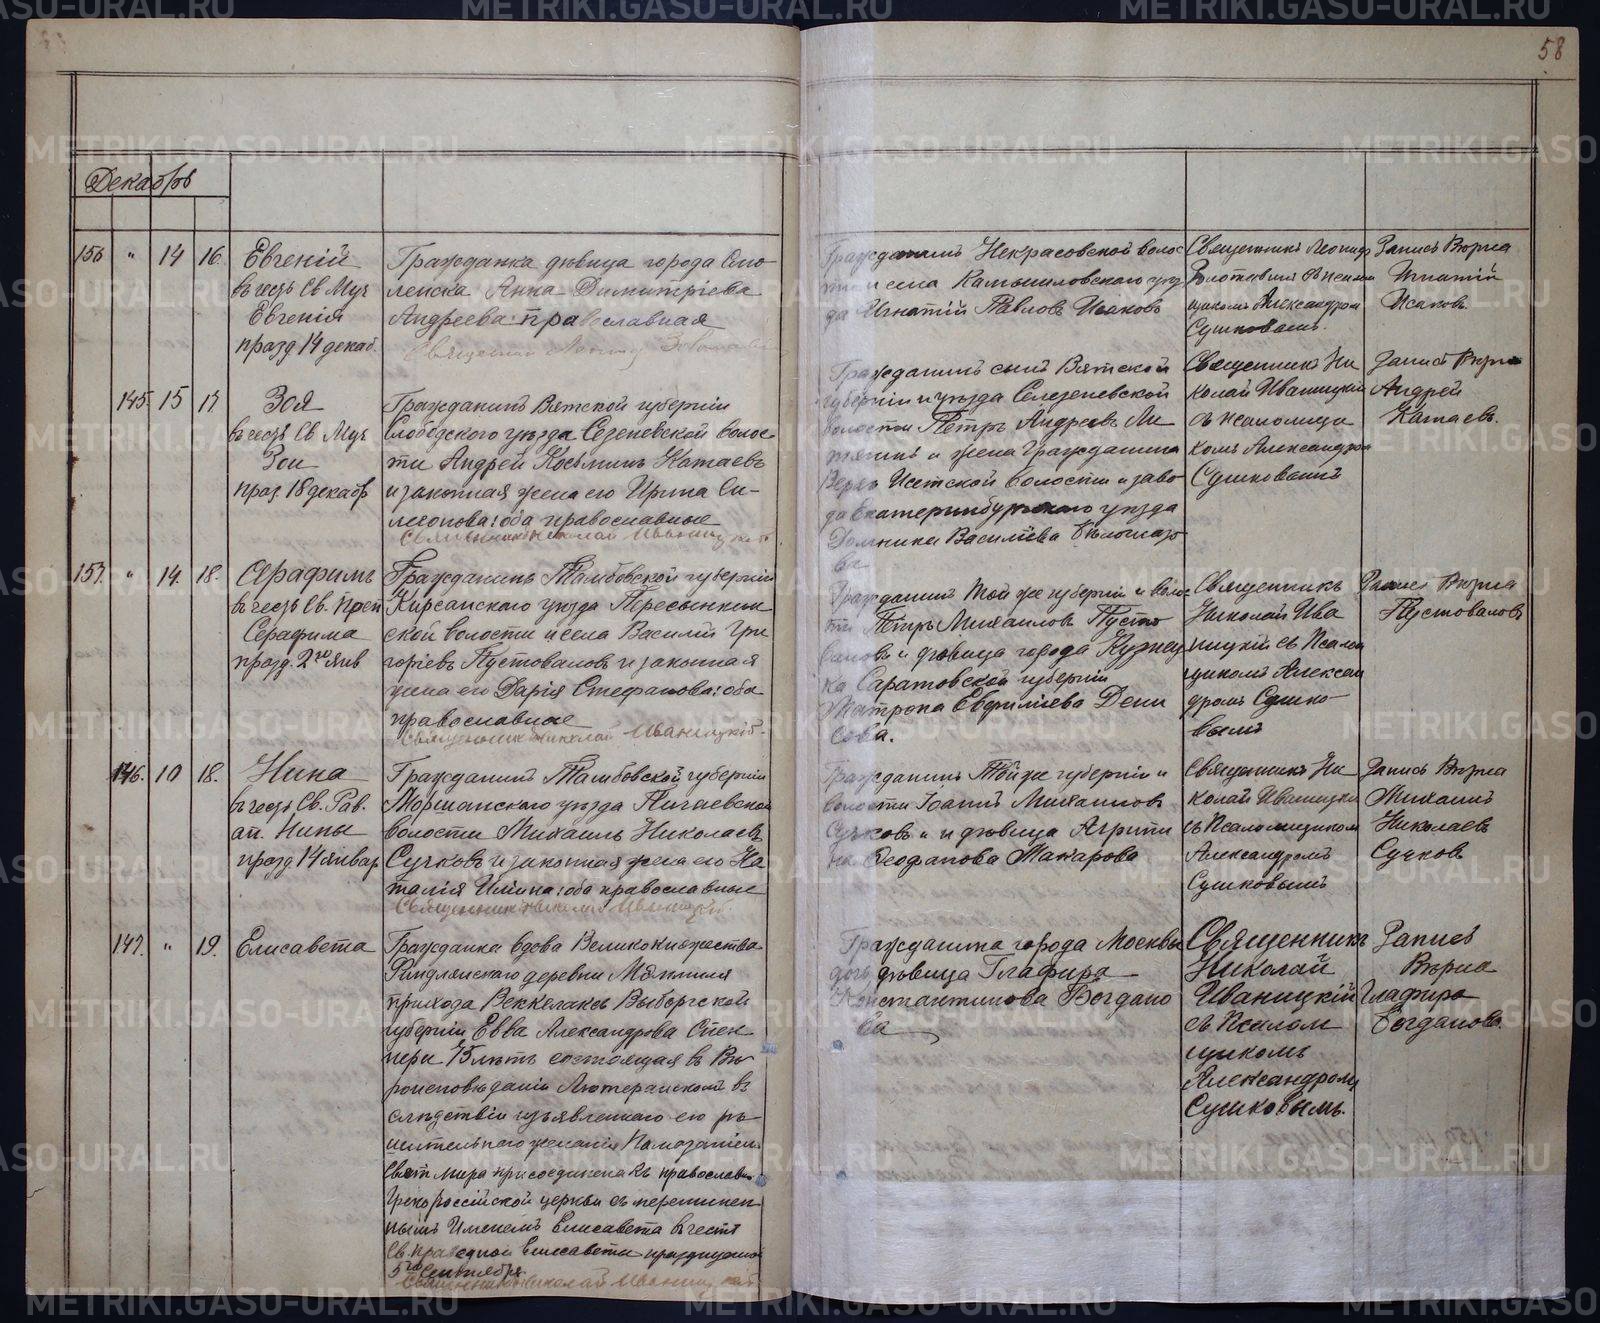 58
Декабрь
156 " 14 16 Евгеній
въ честь Св Муч
Евгенія
празд. 14 декаб.
Гражданка дѣвица города Смо
ленска Анна Димитріева
Андреева: православная
Гражданинъ Некрасовской волос
ти и села Камышловскаго уѣз
да Игнатій Павловъ Исаковъ
Священникъ Леонид
съ псалом
щикомъ Александром
Сушковымъ.
Запись Вѣрна
Игнатій
Исаковъ
145. 15 17 Зоя
въ честь Св Муч
Зои
праз. 18 декабр
Гражданинъ Вятской губерніи
Слободского уѣзда Сезеневской волос
ти Андрей Косьминъ Катаевъ
и законная жена его Ирина Си-
меонова: оба православные
Священникъ Николай Иваницкій
Гражданинъ сынъ Вятской
губерніи и уѣзда Селезеневской
волости Петръ Андреевъ Ли
и жена Гражданина
Верхъ Исетской волости и заво
да Екатеринбургскаго уѣзда
Домника Васильева
ва
Священникъ Ни
колай Иваницкій
съ псаломщи
комъ Александром
Сушковымъ
Запись Вѣрна
Андрей
Катаевъ.
157. " 14. 18. Серафимъ
въ честь Св. Преп
Серафима
празд. 2го Янв
Гражданинъ Тамбовской губерніи
Кирсанскаго уѣзда Пересыпкин
ской волости и села Василій Гри
горіевъ Пустоваловъ и законная
жена его Дарія Стефанова: оба
православные
Священникъ Николай Иваницкій.
Гражданинъ Той же губерніи и волос
ти Петръ Михаиловъ Пусто
валовъ и дѣвица города Кузнец
ка Саратовской губерніи
Матрона Евфиміева Дени
сова.
Священникъ
Николай Ива
ницкій съ Псалом
щикомъ Алексан
дромъ Сушко-
вымъ
Запись Вѣрна
Пустоваловъ
146. 10 18. Нина
въ честь Св. Рав.
ап. Нины
празд 14 январ
Гражданинъ Тамбовской губерніи
Моршанскаго уѣзда Пичаевской
волости Михаилъ Николаевъ
Сучковъ и законная жена его На
талія Ильина: оба православные
Священникъ Николай Иваницкій.
Гражданинъ Той же губерніи и
волости Іоаннъ Михаиловъ
Сучковъ и дѣвица Агрипи
на Феофанова Макарова
Священникъ Ни
колай Иваницкій
съ Псаломщикомъ
Александромъ
Сушковымъ
Запись Вѣрна
Михаилъ
Николаевъ
Сучковъ
147. " 19. Елисавета
Гражданка вдова Великокняжества
Финдлянскаго деревни
прихода Веккелаксъ Выборгской
губерніи Евва Александрова Спен
нери 75 лѣтъ состоящая въ Вѣ
роисповѣданіи Лютеранскомъ въ
слѣдствіи изъявленнаго ею рѣ-
шительнаго желанія Помазаніемъ
Свят Мира присоединена къ православн
Грекороссійской церкви съ перемѣнен
нымъ Именемъ Елисавета въ честь
Св. праведной Елисаветы празднуемой
5го Сентября
Священникъ Николай Иваницкій
Гражданка города Москвы
дочь дѣвица Глафира
Константинова Богдано
ва
Священникъ
Николай
Иваницкій
съ Псалом
щикомъ
Александромъ
Сушковымъ.
Запись
Вѣрна
Глафира
Богданова.
METRIKI.GASO-URAL.RU